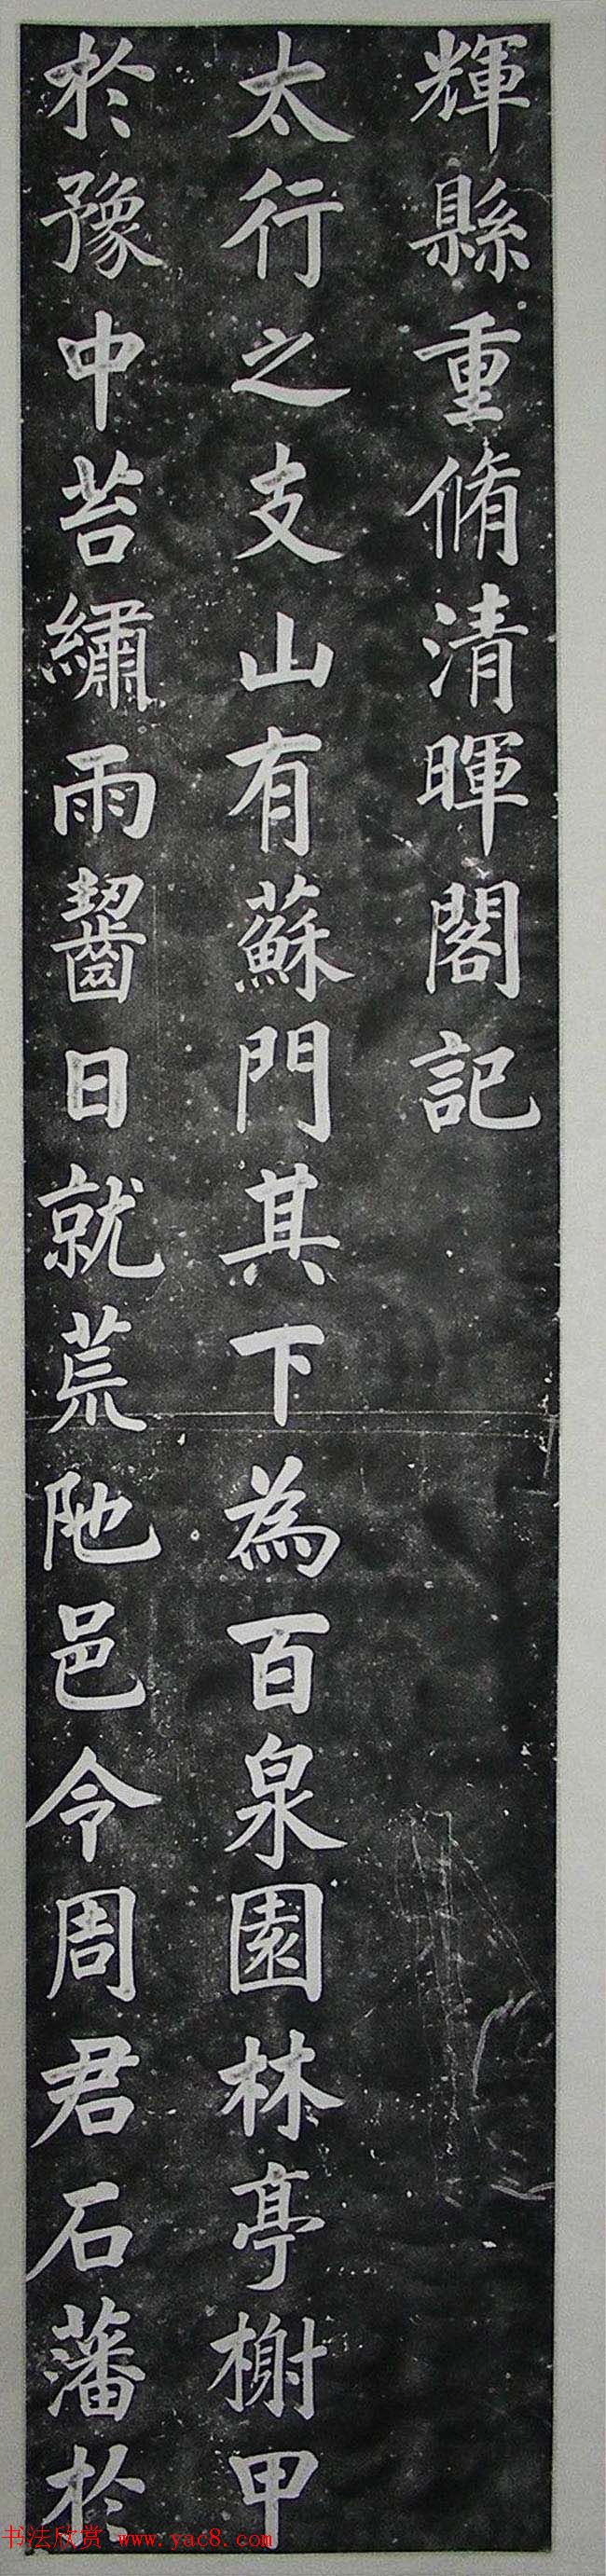 輝縣重脩清暉閣記
太行之支山有蘇門其下為百泉園林亭榭甲
於豫中苔繡雨齧日就荒阤邑令周君石藩於
书法欣赏 www.yac8.com